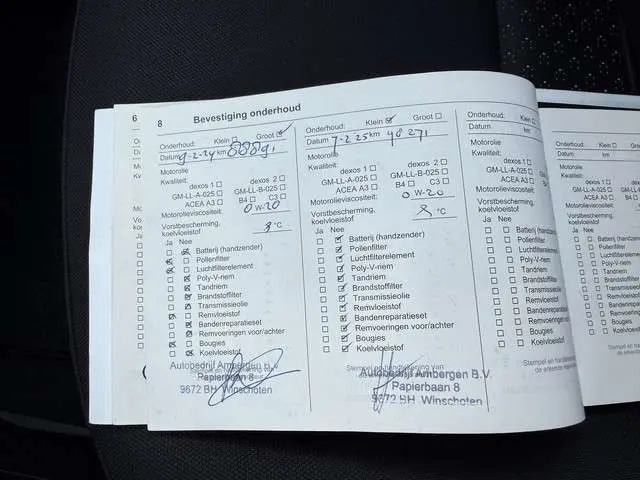 6
8 Bevestiging onderhoud
Onderhoud: Klein ☐ Groot ☑
Datum 9-2-24 km
Motorolie
Kwaliteit:
dexos 1 ☐ dexos 2 ☐
GM-LL-A-025 ☐ GM-LL-B-025 ☐
ACEA A3 ☐ B4 ☐ C3 ☐
Motorolieviscositeit: 0W-20
Vorstbescherming, koelvloeistof °C
Ja Nee
Batterij (handzender)
Pollenfilter
Luchtfilterelement
Poly-V-riem
Tandriem
Brandstoffilter
Transmissieolie
Remvloeistof
Bandenreparatieset
Remvoeringen voor/achter
Bougies
Koelvloeistof
Autobedrijf Ambergen B.V.
Papierbaan 8
9672 BH Winschoten
Onderhoud: Klein ☑ Groot ☐
Datum 7-2-25 km 98271
Motorolie
Kwaliteit:
dexos 1 ☐ dexos 2 ☐
GM-LL-A-025 ☐ GM-LL-B-025 ☐
ACEA A3 ☐ B4 ☐ C3 ☐
Motorolieviscositeit: 0W-20
Vorstbescherming, koelvloeistof °C
Ja Nee
Batterij (handzender)
Pollenfilter
Luchtfilterelement
Poly-V-riem
Tandriem
Brandstoffilter
Transmissieolie
Remvloeistof
Bandenreparatieset
Remvoeringen voor/achter
Bougies
Koelvloeistof
Stempel en handtekening van
Autobedrijf Ambergen B.V.
Papierbaan 8
9672 BH Winschoten
Onderhoud: Klein ☐ Groot ☐
Datum km
Motorolie
Kwaliteit:
dexos 1 ☐ dexos 2 ☐
GM-LL-A-025 ☐ GM-LL-B-025 ☐
ACEA A3 ☐ B4 ☐ C3 ☐
Motorolieviscositeit:
Vorstbescherming, koelvloeistof °C
Ja Nee
Batterij (handzender)
Pollenfilter
Luchtfilterelement
Poly-V-riem
Tandriem
Brandstoffilter
Transmissieolie
Remvloeistof
Bandenreparatieset
Remvoeringen voor/achter
Bougies
Koelvloeistof
Stempel en handtekening
Onderhoud:
Datum km
Motorolie
Kwaliteit: